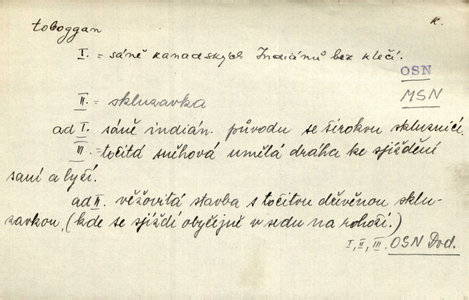 toboggan K.
I. = sáně kanadských Indiánů bez klečí.
OSN
II. = skluzavka MSN
ad I. sáně indián. původu se širokou skluznicí.
III = točitá sněhová umělá dráha ke sjíždění
saní a lyčí.
ad II. věžovitá stavba s točitou dřevěnou sklu-
zavkou, (kde se sjíždí obyčejně v sedu na rohoži.)
I, II, III. OSN Dod.